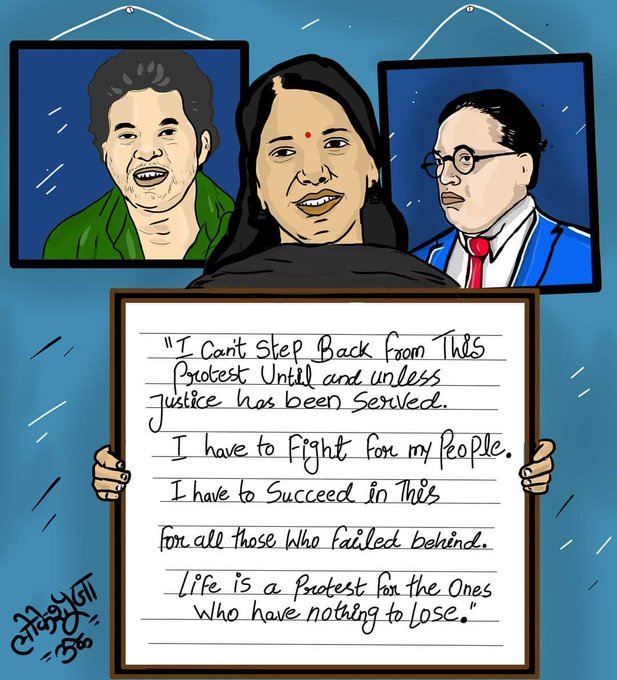 "I can't step Back from This
Protest Until and unless
justice has been served.
I have to Fight for my People.
I have to Succeed in This
for all those Who failed behind.
Life is a Protest for the Ones
Who have nothing to Lose."